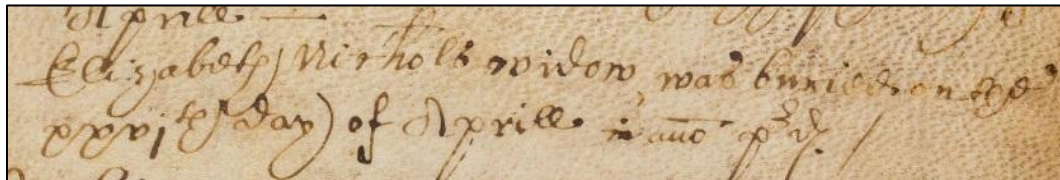 Aprill
Elizabeth Nicholls widow was buried on the
xxvjth day of Aprill in ano prd